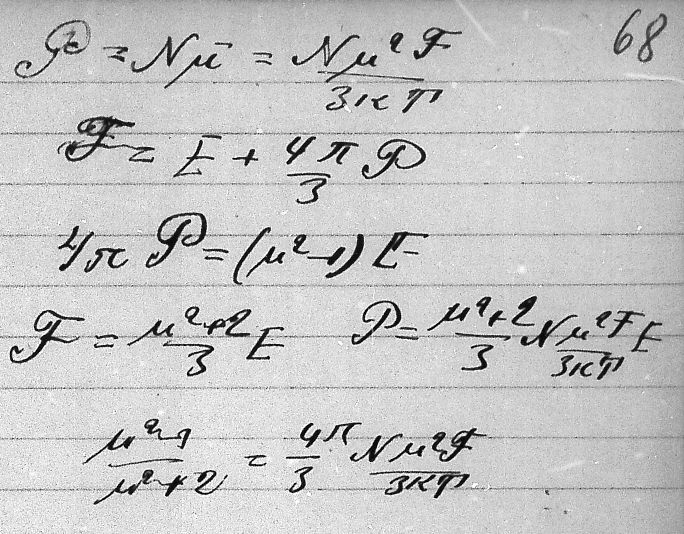 68
P = Nμ̄ = Nμ²F / 3kT
F = E + 4π/3 P
4π P = (μ²-1) E
F = μ²+2 / 3 E P = μ²+2 / 3 Nμ²F / 3kT E
μ²-1 / μ²+2 = 4π / 3 Nμ²F / 3kT